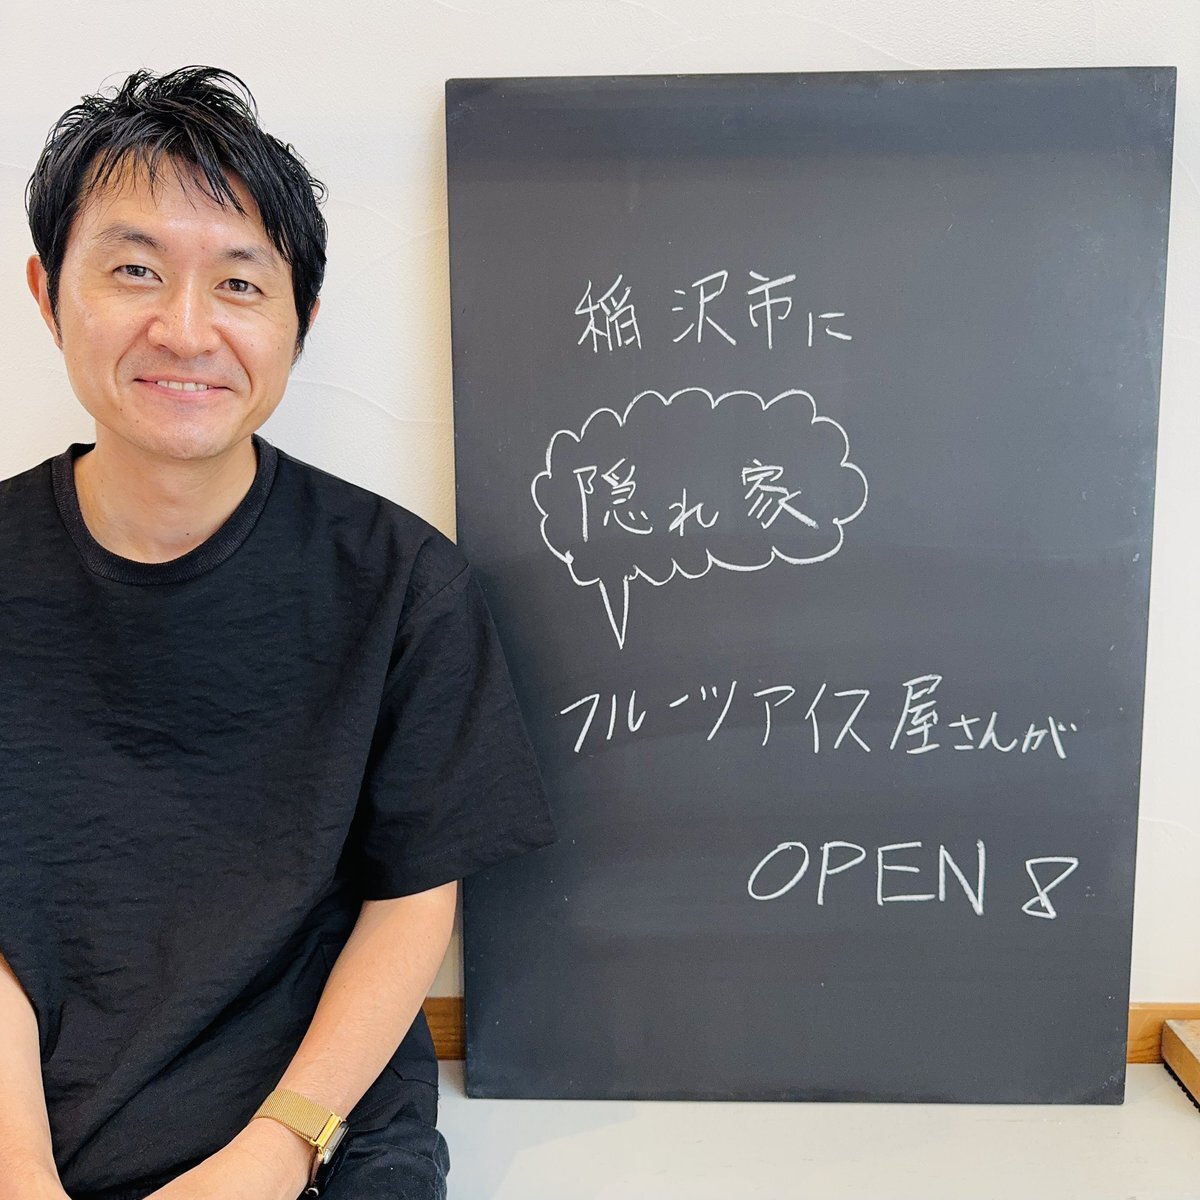 稲沢市に
隠れ家
フルーツアイス屋さんが
OPEN 8